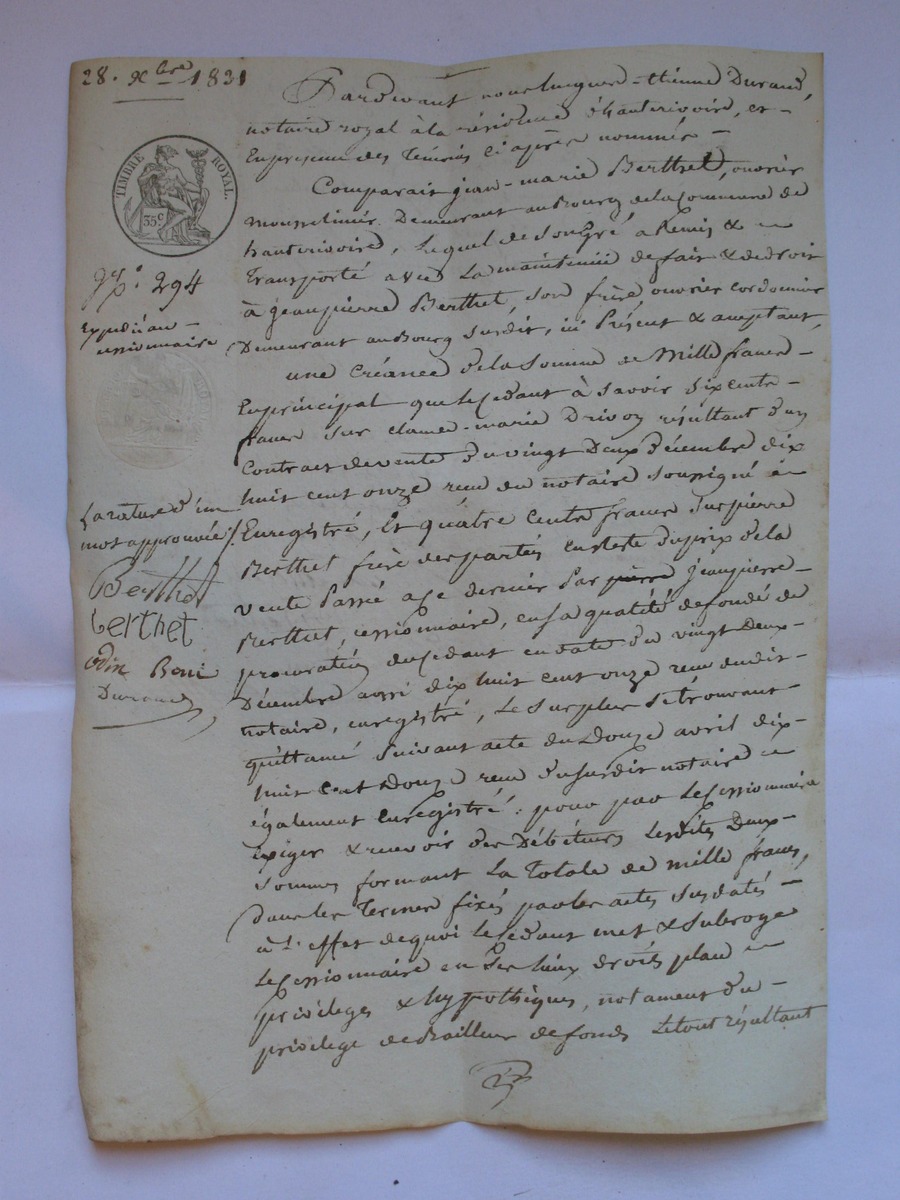 28. xbre 1831
TIMBRE ROYAL
35 c
No. 294
Expédition
cessionnaire
La rature d'un
mot approuvée /.
Berthet
berthet
odin Boni
Durand
Pardevant nous étienne Durand,
notaire royal à la résidence d'hauterivoire, et
En présence des témoins ci après nommés
Comparait jean-marie Berthet, ouvrier
mousselinier. Demeurant au Bourg de la Commune de
hauterivoire, Lequel de son gré a Remis &
Transporté avec La maintenüe de fait & de droit
à jeanpierre Berthet, son frère, ouvrier cordonnier
Demeurant au Bourg susdit, ici Présent & acceptant,
une Créance de la Somme de Mille francs
En principal que le Cédant à Savoir Six cents
francs sur claude-marie Drivon résultant d'un
Contract de vente du vingt Deux Décembre dix
huit cent onze reçu du notaire soussigné
Enregistré, Et quatre Cents francs sur pierre
Berthet frère des parties en reste du prix de la
vente Passé a ce dernier Par pierre jeanpierre
Berthet, cessionnaire, en sa qualité de fondé de
procuration du Cédant en date du vingt Deux
Décembre aussi dix huit cent onze reçu dudit
notaire, enregistré, Le surplus se trouvant
quittancé suivant acte du Douze avril dix
huit Cent Douze reçu du susdit notaire
également Enregistré : pour par Le Cessionnaire
exiger & recevoir des Débiteurs Lesdites Deux
sommes formant La Totale de mille francs,
dans les Termes fixés par les actes susdatés
à L'effet de quoi le Cédant met & subroge
Le Cessionnaire en ses lieux droits place
privileges & hypothèques, notament du
privilege de Bailleur de fonds Le tout résultant